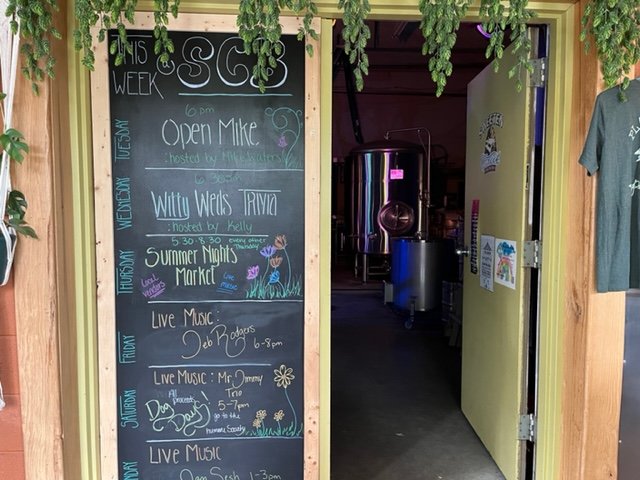 THIS
WEEK
@SCB
TUESDAY
6pm
Open Mike
:hosted by Mike Waters
WEDNESDAY
6:30pm
Witty Weds Trivia
:hosted by Kelly
THURSDAY
5:30-8:30 every other Thursday
Summer Nights
Market
Local
Vendors
Live
Music
FRIDAY
Live Music:
Deb Rodgers
6-8pm
SATURDAY
Live Music: Mr Jimmy
Trio
5-7pm
Dog
Days!
All
proceeds
go to the
Humane Society
Live Music
Jam Sesh 1-3pm